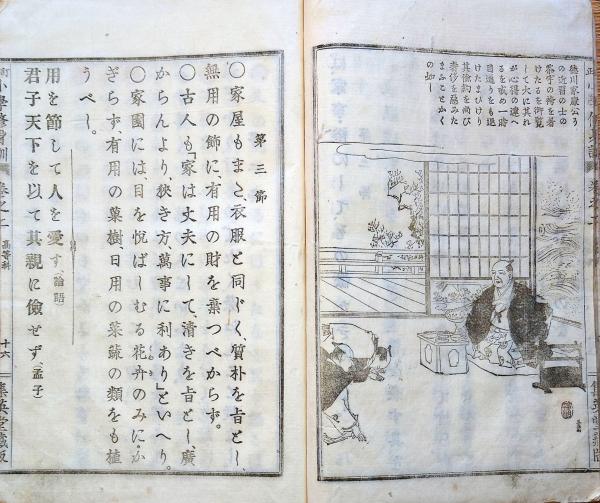 徳川家康公う
の近習の士の
茶宇の袴を着
けたるを御覧
して大に其れ
が心得の違へ
るを戒め一時
目通りをも退
けたまひけり
其儉約を尚び
奢侈を惡みた
まふことかく
の如し
第三節
〇家屋もまた、衣服と同じく、質朴を旨とし、
無用の飾に、有用の財を棄つべからず。
〇古人も「家は丈夫にして、清きを旨とし、廣
からんより、狹き方萬事に利あり」といへり。
〇家園には、目を悦ばしむる花卉のみに、か
ぎらず、有用の菓樹日用の菜蔬の類をも植
うべし。
用を節して人を愛す、(論語)
君子天下を以て其親に儉せず、(孟子)
小學修身訓 卷之二 高等科 十六 集英堂藏版